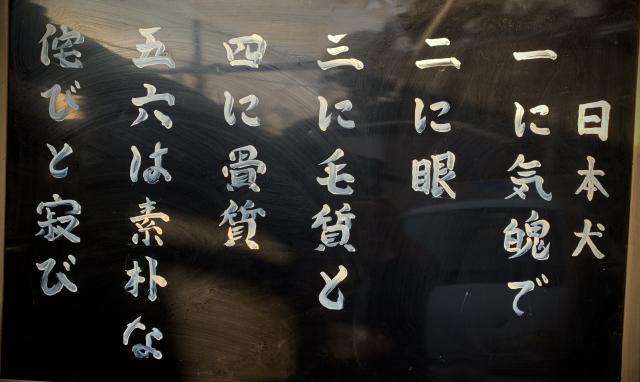 日本犬
一に気魄で
二に眼
三に毛質と
四に骨質
五六は素朴な
侘びと寂び